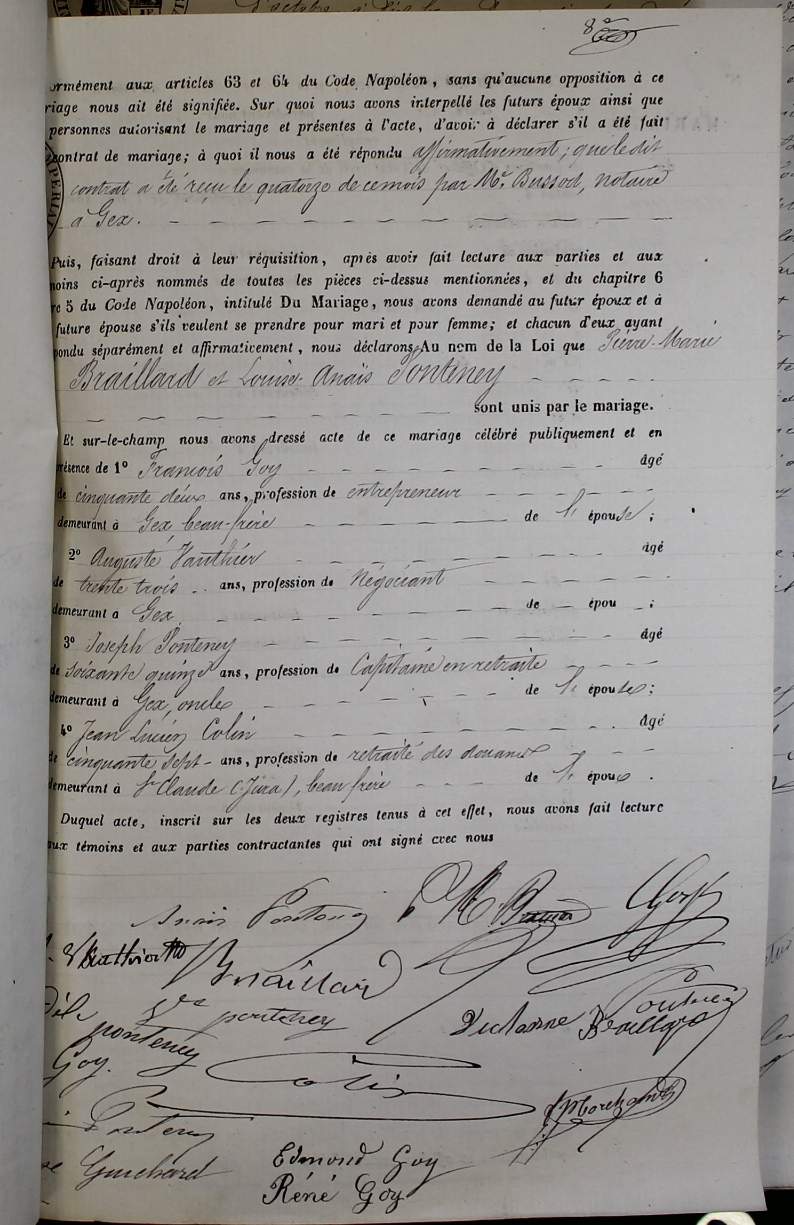 8
ormément aux articles 63 et 64 du Code Napoléon, sans qu'aucune opposition à ce
riage nous ait été signifiée. Sur quoi nous avons interpellé les futurs époux ainsi que
personnes autorisant le mariage et présentes à l'acte, d'avoir à déclarer s'il a été fait
contrat de mariage; à quoi il nous a été répondu affirmativement; que le dit
contrat a été reçu le quatorze de ce mois par Me. Bussod, notaire
à Gex.
PERIAL
Puis, faisant droit à leur réquisition, après avoir fait lecture aux parties et aux
moins ci-après nommés de toutes les pièces ci-dessus mentionnées, et du chapitre 6
re 5 du Code Napoléon, intitulé Du Mariage, nous avons demandé au futur époux et à
future épouse s'ils veulent se prendre pour mari et pour femme; et chacun d'eux ayant
pondu séparément et affirmativement, nous déclarons, Au nom de la Loi que Pierre-Marie
Braillard et Louise-Anaïs Ponteney
sont unis par le mariage.
Et sur-le-champ nous avons dressé acte de ce mariage célébré publiquement et en
résence de 1º François Goy âgé
de cinquante deux ans, profession de entrepreneur
demeurant à Gex, beau-frère de l' épouse;
2º Auguste Vauthier âgé
de trente trois ans, profession de Négociant
demeurant à Gex. de épou ;
3º Joseph Ponteney âgé
de soixante quinze ans, profession de Capitaine en retraite
demeurant à Gex, oncle de l' épouse;
4º Jean Lucien Colin âgé
de cinquante sept ans, profession de retraité des douanes
demeurant à St Claude (Jura), beau frère de l' époux.
Duquel acte, inscrit sur les deux registres tenus à cet effet, nous avons fait lecture
aux témoins et aux parties contractantes qui ont signé avec nous
Anaïs Ponteney P M Goy
Braillard
Vve ponteney Duchesne Braillard
ponteney
Goy. Colin
Ponteney J Marchand
Guichard Edmond Goy
Réné Goy